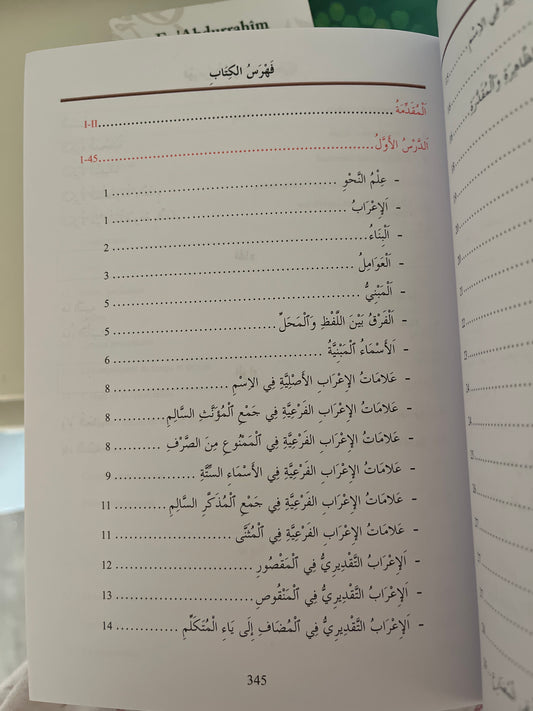 F. ‘Abdurrahîm
فَهْرَسُ الكِتَابِ
اَلْمُقَدِّمَةُ ........ I-II
اَلدَّرْسُ الأَوَّلُ ........ 1-45
- عِلْمُ النَّحْوِ ........ 1
- اَلإِعْرَابُ ........ 1
- اَلْبِنَاءُ ........ 2
- اَلْعَوَامِلُ ........ 3
- اَلْمَبْنِيُّ ........ 5
- اَلْفَرْقُ بَيْنَ اللَّفْظِ وَالْمَحَلِّ ........ 5
- اَلأَسْمَاءُ الْمَبْنِيَّةُ ........ 6
- عَلاَمَاتُ الإِعْرَابِ الأَصْلِيَّةِ فِي الاِسْمِ ........ 8
- عَلاَمَاتُ الإِعْرَابِ الفَرْعِيَّةِ فِي جَمْعِ الْمُؤَنَّثِ السَّالِمِ ........ 8
- عَلاَمَاتُ الإِعْرَابِ الفَرْعِيَّةِ فِي الْمَمْنُوعِ مِنَ الصَّرْفِ ........ 8
- عَلاَمَاتُ الإِعْرَابِ الفَرْعِيَّةِ فِي الأَسْمَاءِ السِّتَّةِ ........ 9
- عَلاَمَاتُ الإِعْرَابِ الفَرْعِيَّةِ فِي جَمْعِ الْمُذَكَّرِ السَّالِمِ ........ 11
- عَلاَمَاتُ الإِعْرَابِ الفَرْعِيَّةِ فِي الْمُثَنَّى ........ 11
- اَلإِعْرَابُ التَّقْدِيرِيُّ فِي الْمَقْصُورِ ........ 12
- اَلإِعْرَابُ التَّقْدِيرِيُّ فِي الْمَنْقُوصِ ........ 13
- اَلإِعْرَابُ التَّقْدِيرِيُّ فِي الْمُضَافِ إِلَى يَاءِ الْمُتَكَلِّمِ ........ 14
345